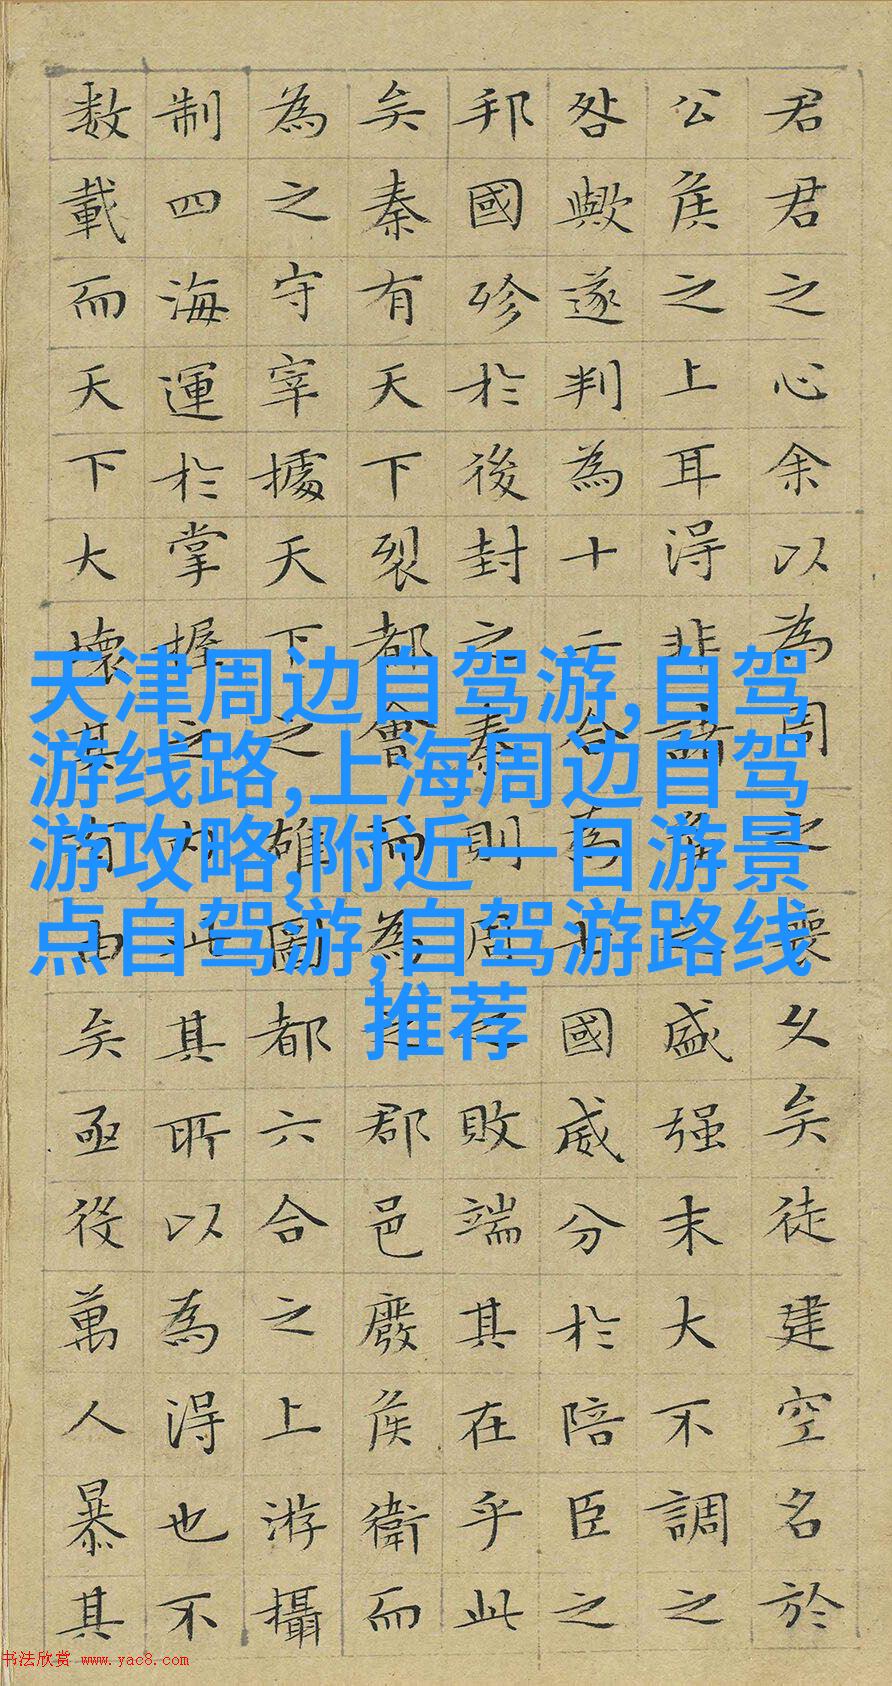 君君之心余以為周之喪久矣徒建空名於
公侯之上耳得非諸侯之盛强末大不調之
咎歟遂判為十二合為七國威分於陪臣之
邦國殄於後封之秦則周之敗端其在乎此
矣秦有天下裂都會而為之郡邑廢侯衛而
為之守宰據天下之雄圖都六合之上游攝
制四海運於掌握之内此其所以為得也不
数載而天下大壞其有由矣亟役萬人暴其
天津周边自驾游,自驾
游线路,上海周边自驾
游攻略,附近一日游景
点自驾游,自驾游路线
推荐
书法欣赏 www.yac8.com